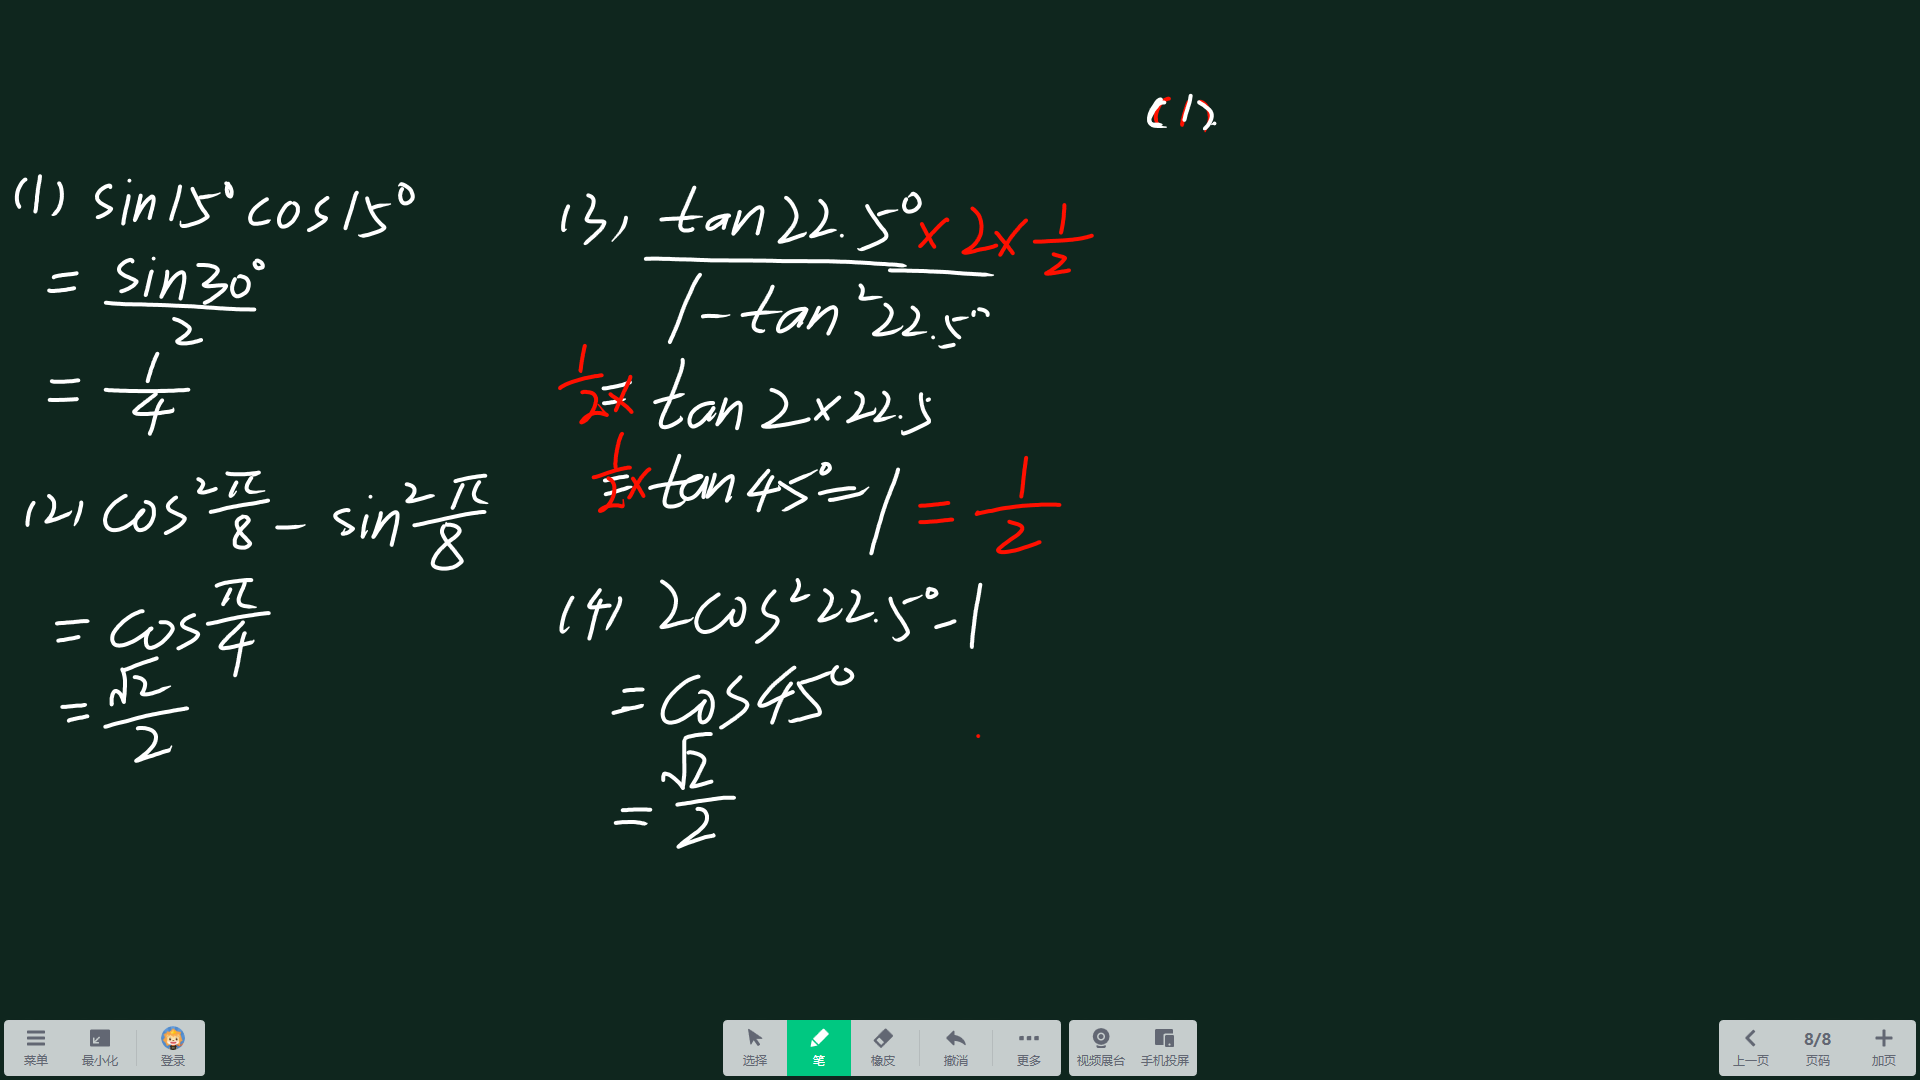 (1).
(1) sin15°cos15°
= sin30°/2
= 1/4
(2) cos²π/8 - sin²π/8
= cos π/4
= √2/2
(3) tan22.5° × 2 × 1/2
1 - tan²22.5°
1/2 × = tan 2×22.5
1/2 × = tan 45° = 1 = 1/2
(4) 2cos²22.5° - 1
= cos45°
= √2/2
菜单 最小化 登录 选择 笔 橡皮 撤消 更多 视频展台 手机投屏 上一页 8/8 页码 加页